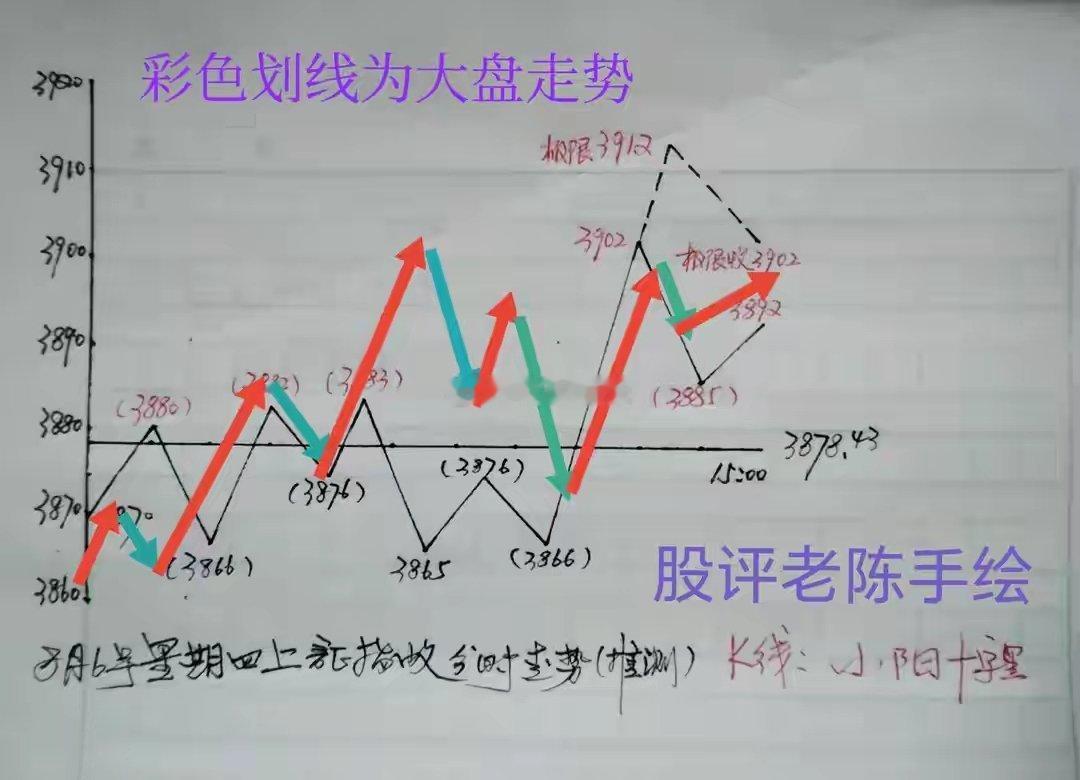 彩色划线为大盘走势
3920
3910
3900
3890
3880
3870
3860
极限3912
3902
极限收3902
3892
(3885)
(3880)
(3883)
(3876)
(3876)
(3866)
3865
(3866)
3878.43
15:00
股评老陈手绘
月6号星期四上证指收分时走势(推测)
K线:小阳十字星